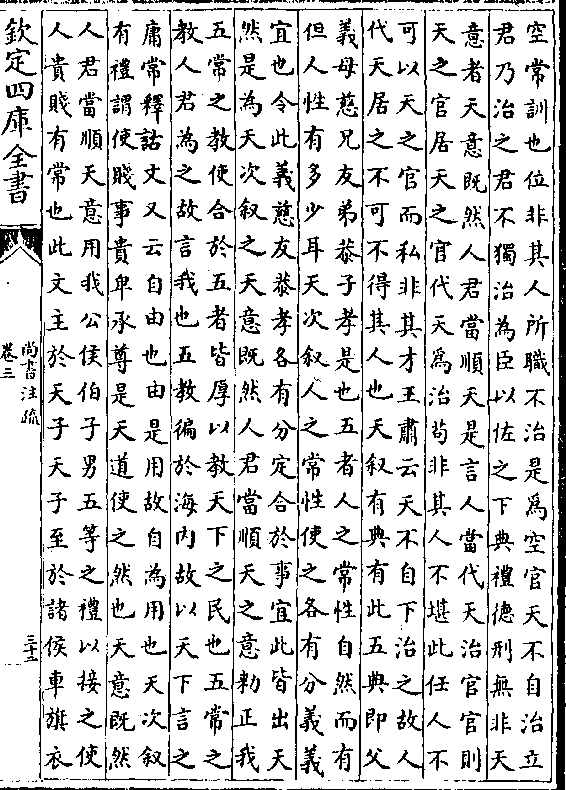 空常訓也位非其人所職不治是爲空官天不自治立
君乃治之君不獨治為臣以佐之下典禮德刑無非天
意者天意既然人君當順天是言人當代天治官官則
天之官居天之官代天爲治苟非其人不堪此任人不
可以天之官而私非其才王肅云天不自下治之故人
代天居之不可不得其人也天叙有典有此五典即父
義母慈兄友弟恭子孝是也五者人之常性自然而有
但人性有多少耳天次叙人之常性使之各有分義義
宜也令此義慈友恭孝各有分定合於事宜此皆出天
然是為天次叙之天意既然人君當順天之意勑正我
五常之教使合於五者皆厚以教天下之民也五常之
教人君為之故言我也五教徧於海内故以天下言之
庸常釋詁文又云自由也由是用故自為用也天次叙
有禮謂使賤事貴卑承尊是天道使之然也天意既然
人君當順天意用我公侯伯子男五等之禮以接之使
人貴賤有常也此文主於天子天子至於諸侯車旗衣
欽定四庫全書
尚書注疏
卷三
三十三